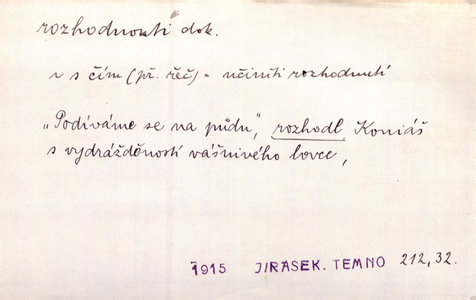 rozhodnouti dok.
v s čím (př. řeč) = učiniti rozhodnutí
„Podíváme se na půdu", rozhodl Koniáš
s vydrážděností vášnivého lovce,
1915 JIRASEK. TEMNO 212, 32.